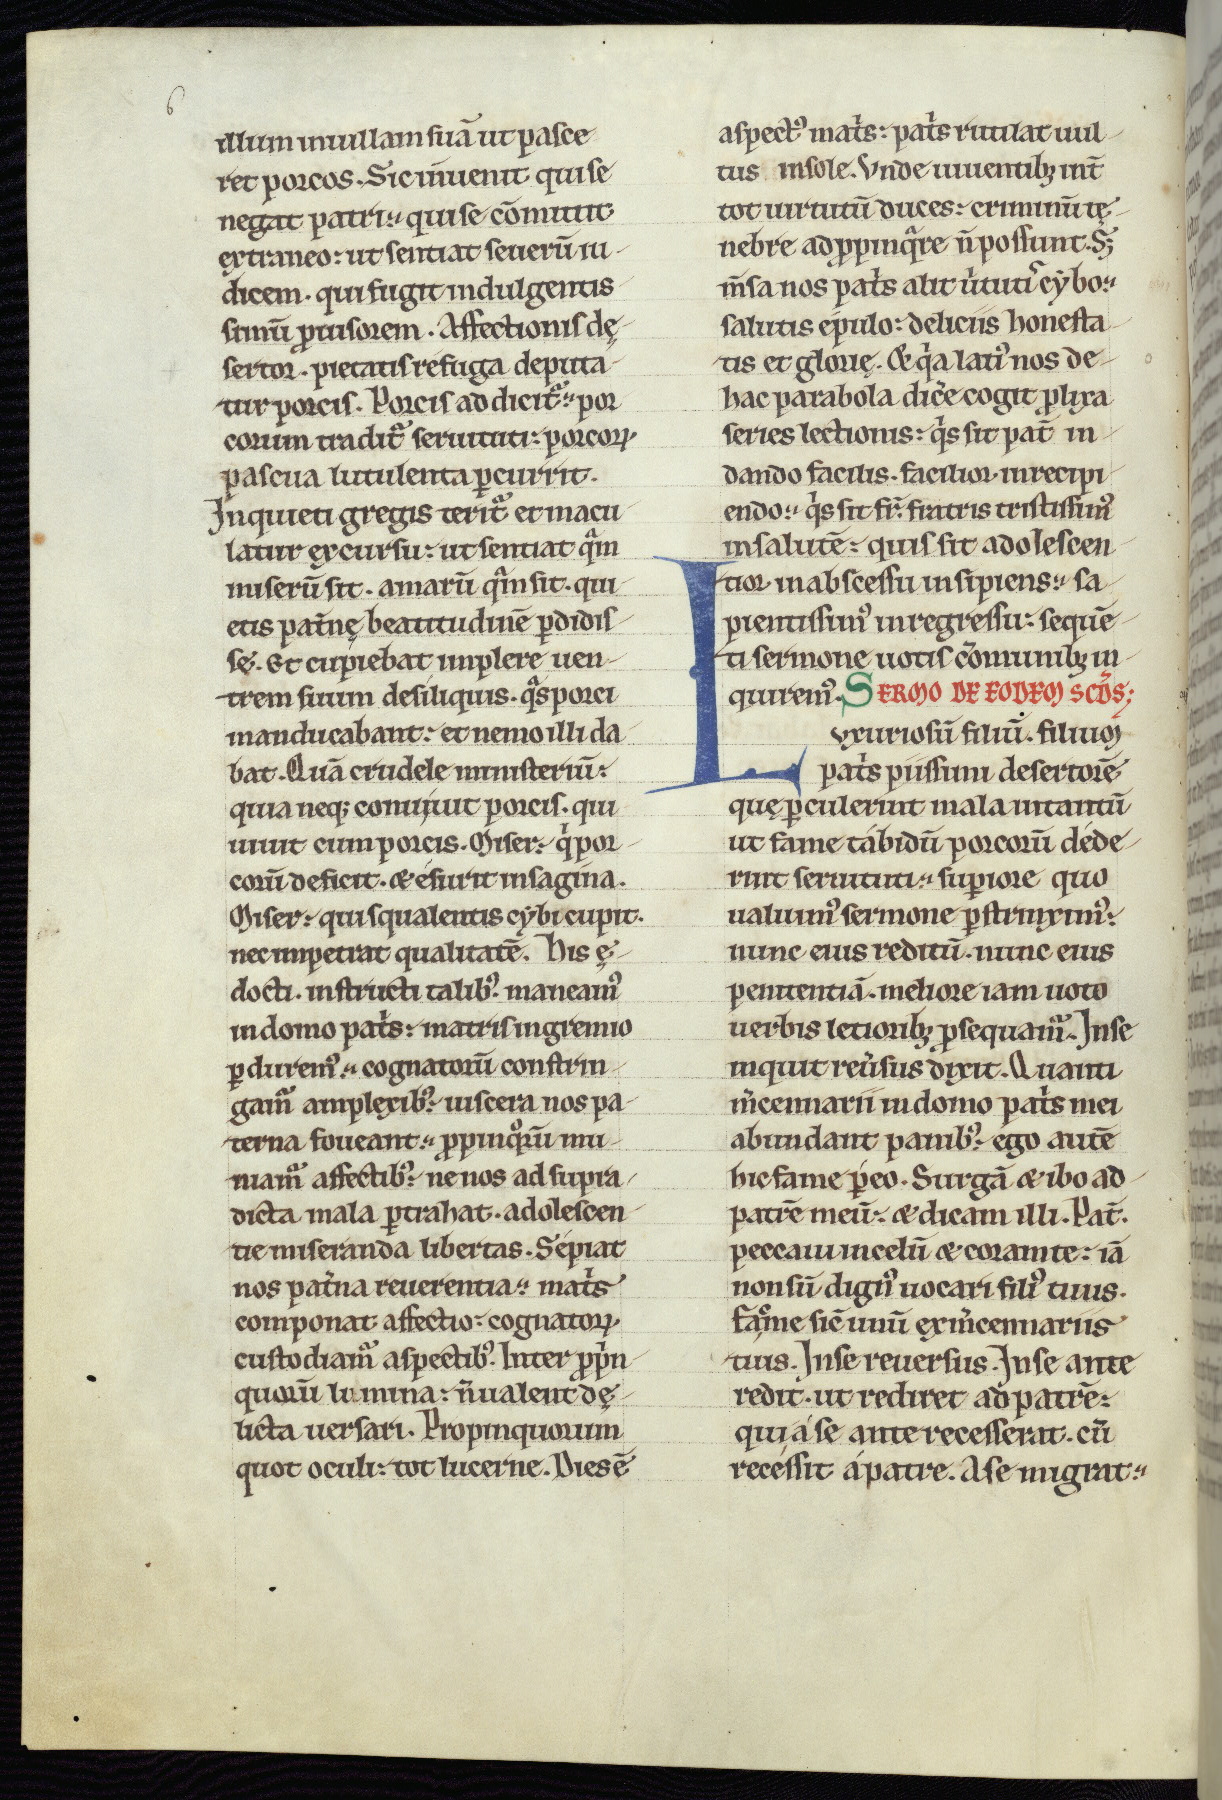 6
illum in uillam suā ut pasce
ret porcos. Sic inuenit qui se
negat patri: qui se cōmittit
extraneo: ut sentiat seuerū iu
dicem. qui fugit indulgentis
simū ꝓuisorem. Affectionis dę
sertor. pietatis refuga deputa
tur porcis. Porcis addicit᷑: por
corum tradit᷑ seruituti: porcoꝝ
pascua lutulenta ꝑcurrit.
Inquieti gregis terit᷑ et macu
latur excursu: ut sentiat qͣm
miserū sit. amarū qͣm sit. qui
etis pat̄nę beatitudinē ꝑdidis
sę. Et cupiebat implere uen
trem suum de siliquis. qͣs porci
manducabant: et nemo illi da
bat. Quā crudele ministeriū:
quia neqꝫ conuiuit porcis. qui
uiuit cum porcis. Miser: qͥ por
corū deficit. & esurit in sagina.
Miser: qui squalentis cybi cupit.
nec impetrat qualitatē. His ę
docti. instructi talibꝰ. maneamꝰ
in domo pat̄s: matris in gremio
ꝑduremꝰ: cognatorū constrin
gam᷑ amplexibꝰ: uiscera nos pa
terna foueant: ꝓpinqͦrū mu
niam᷑ affectibꝰ: ne nos ad supra
dicta mala ꝑtrahat. adolescen
tie miseranda libertas. Sepiat
nos pat̄na reuerentia: mat̄s
componat affectio: cognatoꝝ
custodiam᷑ aspectibꝰ. Inter ꝓpin
quorū lumina: n̄ ualent dę
licta uersari. Propinquorum
quot oculi: tot lucerne. Dies ē
aspectꝰ mat̄s: pat̄s rutilat uul
tus in sole. Vnde uiuentibꝫ int̄
tot uirtutū duces: criminū tę
nebre adꝓpinqͣre n̄ possunt. Sꝫ
m̄sa nos pat̄s alit ūtuti᷑ cybo:
salutis epulo: deliciis honesta
tis et glorię. & qͥa latiꝰ nos de
hac parabola dic̄e cogit ꝓlixa
series lectionis: qͥs sit pat̄ in
dando facilis. facilior in recipi
endo: qͥs sit fr̄. fratris tristissimꝰ
in salutē: quis sit adolescen
tior in abscessu insipiens: sa
pientissimꝰ in regressu: sequē
ti sermone uotis cōmunibꝫ in
quiremꝰ. SERMO DE EODEM SCĎS;
Lvxuriosū filiū. filium
pat̄s piissimi desertorē
quę ꝑculerint mala in tantū
ut fame tabidū porcorū dede
rint seruituti: superiore quo
ualuimꝰ sermone ꝑstrinximꝰ:
nunc eius reditū. nunc eius
penitentiā. meliore iam uoto
uerbis letioribꝫ ꝓsequam᷑. In se
inquit reūsus dixit. Quanti
m̄cennarii in domo pat̄s mei
abundant panibꝰ: ego autē
hic fame ꝑeo. Surgā & ibo ad
patrē meū: & dicam illi. Pat̄.
peccaui in celū & coram te: iā
non sū dignꝰ uocari filiꝰ tuus.
fac me sic̄ unū ex m̄cennariis
tuis. In se reuersus. In se ante
redit. ut rediret ad patrē:
qui a se ante recesserat. cū
recessit a patre. A se migrat: